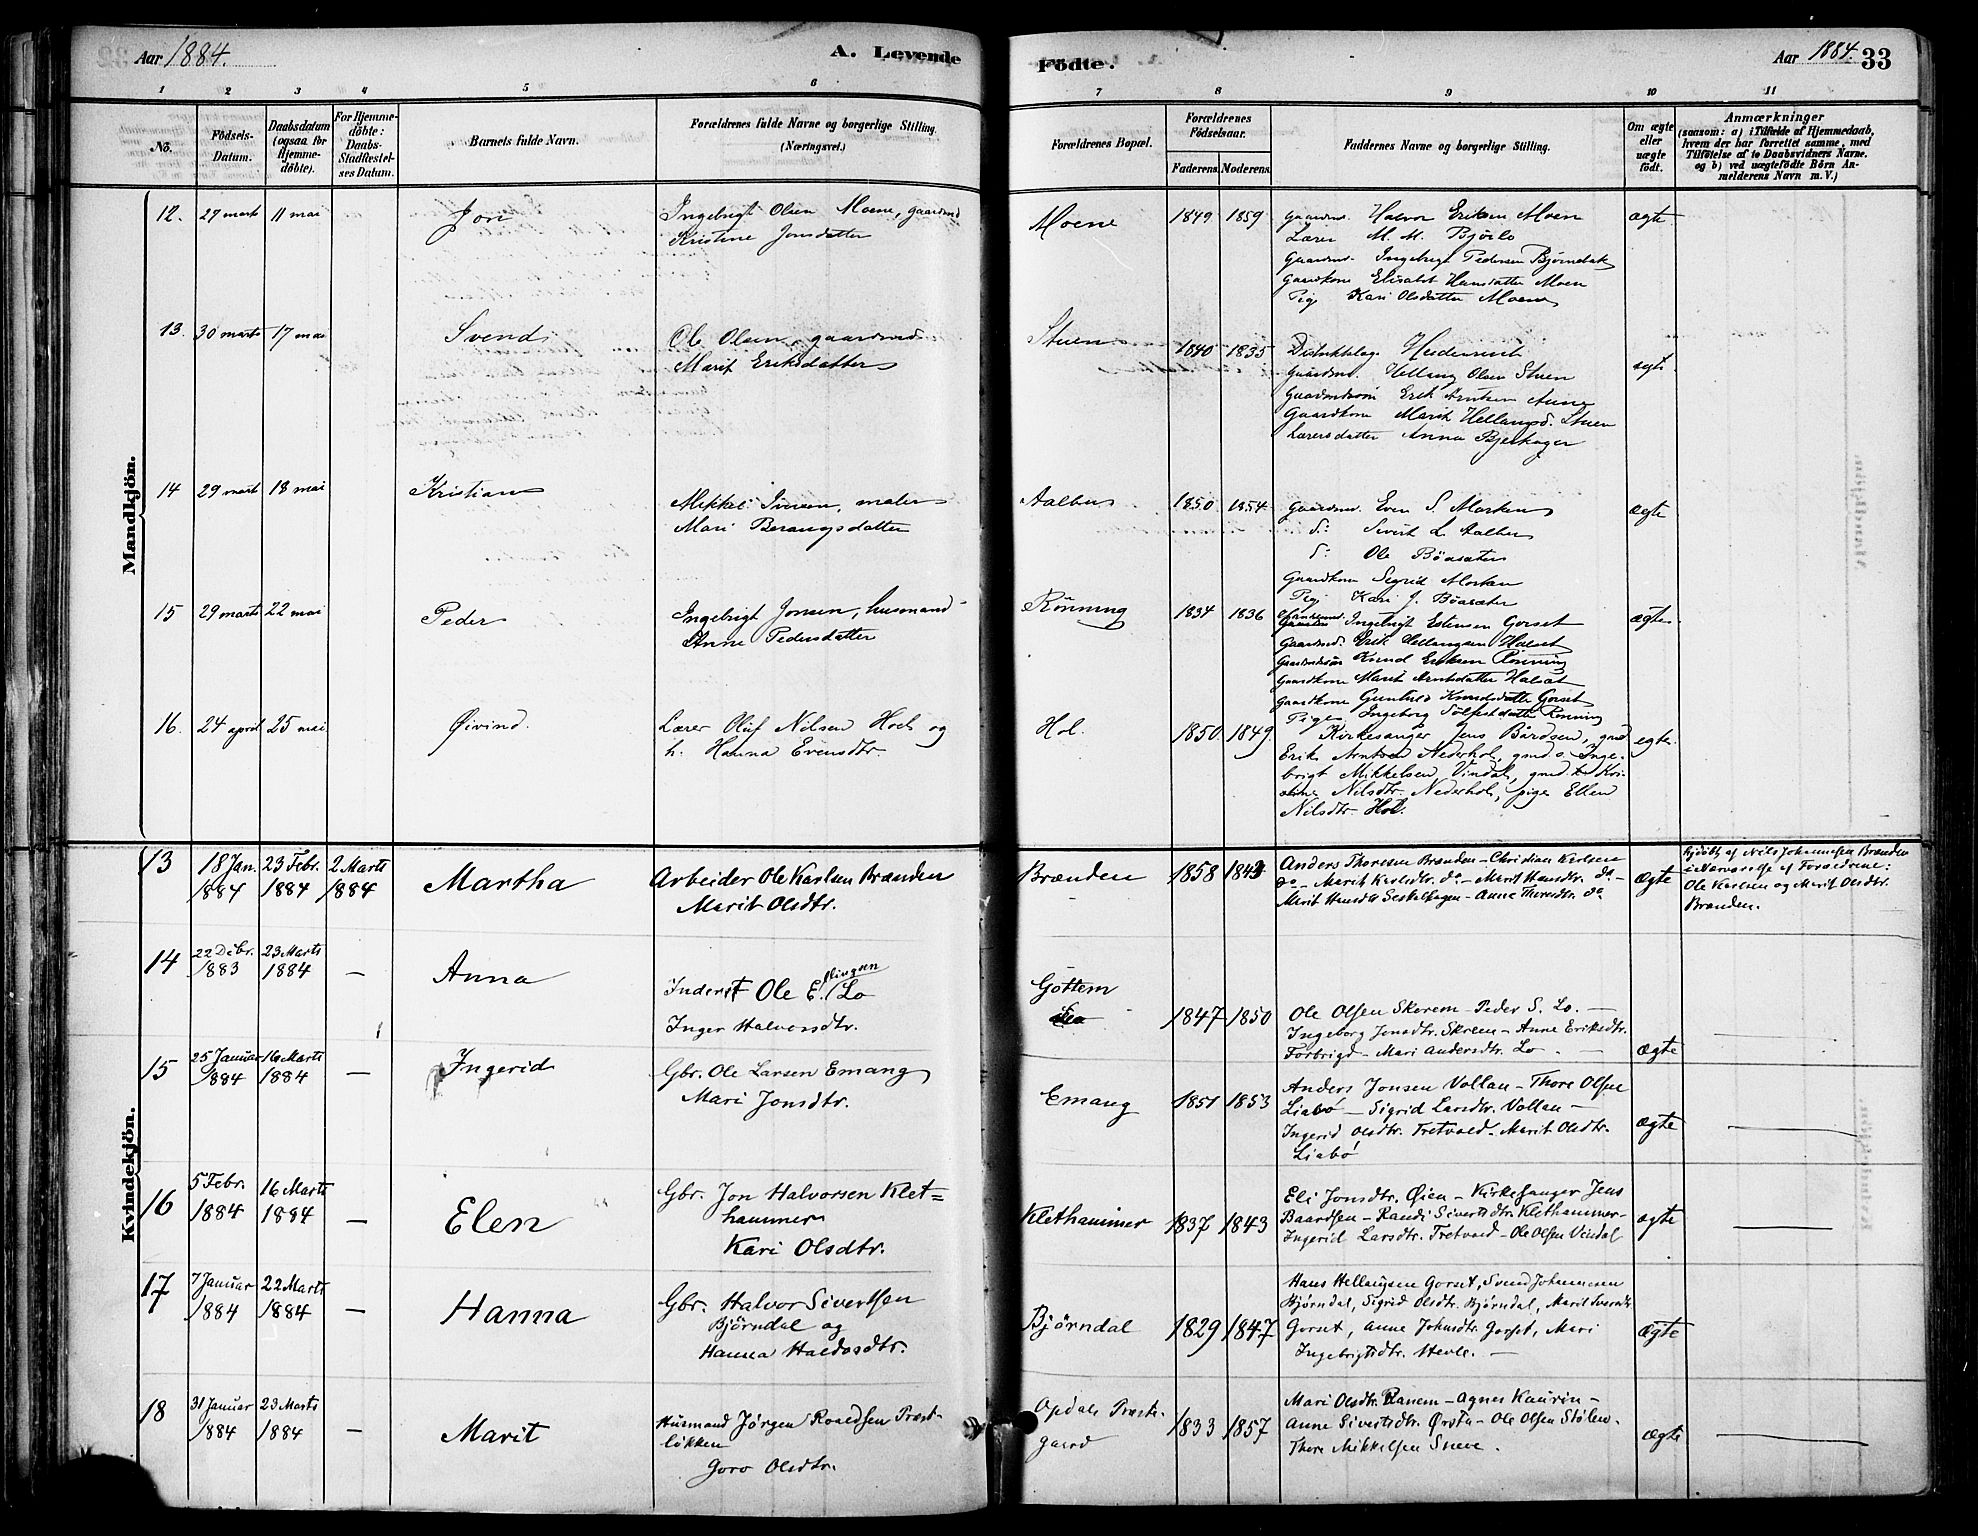 Aar 1884.
A. Levende
Fødte.
Aar 1884. 33
1 2 3 4 5 6 7 8 9 10 11
No.
Födsels-Datum.
Daabsdatum (ogsaa for Hjemmedöbte).
For Hjemmedöbte: Daabs-Stadfæstelses Datum.
Barnets fulde Navn.
Forældrenes fulde Navne og borgerlige Stilling.
(Næringsvei.)
Forældrenes Bopæl.
Forældrenes Födselsaar.
Faderens. Moderens.
Faddernes Navne og borgerlige Stilling.
Om ægte eller uægte födt.
Anmærkninger
(saasom: a) i Tilfælde af Hjemmedaab,
hvem der har forrettet samme, med
Tilføielse af to Daabsvidners Navne.
og b) ved uægtefödte Börn Anmelderens
Navn m. V.)
Mandkjön.
12. 27 marts 11 mai Jon Ingebrigt Olsen Moene, gaardmd Moene 1849 1859 Gaardmd. Halvor Eriksen Moen ægte
Kristine Jonsdatter Lærer M. M. Bjørlo
Gaardmd. Ingebrigt Pedersen Bjørndal
Gaardkone Elisabet Hansdatter Moen
Pig. Kari Olsdatter Moene
13. 30 marts 17 mai Svend Ole Olsen, gaardmd Stuen 1840 1835 Distriktslæge
Marit Eriksdatter Gaardmd. Hellang Olsen Stuen ægte
Gaardmdssøn Erik Arntsen Aune
Gaardkone Marit Hellangsd. Stuen
Lærersdatter Anna Bjerkager
14 29 marts 18 mai Kristian Mikkel Iversen, maler Aalbu 1850 1854 Gaardmd. Even S. Morken ægte
Mari Berangsdatter d: Sivert L. Aalbu
d: Ole Böasæter
Gaardkone Sigrid Morken
Pig. Kari J. Böasæter
15 29 marts 22 mai Peder Ingebrigt Jonsen, husmand Rönning 1834 1836 Ingebrigt Estensen Gorset ægte
Anne Pedersdatter Gaardmd. Erik Hellangsen Halset
Gaardmdssøn Knud Eriksen Rönning
Gaardkone Marit Arntsdatter Halset
Gaardkone Gunhild Knudsdatter Gorset
Pige Ingeborg Sölfestdatter Rönning
16. 24 april 25 mai Øivind. Lærer Oluf Nilsen Hoel og Hol. 1850. 1849. Kirkesanger Jens Bårdsen, gmd ægte.
h. Hanna Evensdtr. Erik Arntsen Nederhol, gmd o. Inge-
brigt Mikkelsen Vindal, gmd k Kri-
Nilsdtr. Nederhol, pige Ellen
Nilsdtr. Hol.
Kvindekjön.
13 18 Jan. 1884 23 Febr. 1884 2 Marts 1884 Martha Arbeider Ole Karlsen Brænden Brænden 1858 Anders Thoresen Brænden – Christian Karlsen ægte Hjdöbt af Nils Johannesen Brænden
Marit Olsdtr. do – Marit Karlsdtr. do – Marit Hansdtr. do – i Nærværelse af Forældrene:
Marit Hansdtr – Anne Thoresdtr. do Ole Karlsen og Marit Olsdtr.
Brænden.
14 22 Debr. 1883 23 Marts 1884 — Anna Inderst Ole Ellingsen Lo Göttem 1847 1850 Ole Olsen Skorem – Peder S. Lo. —
Inger Halvorsdtr. Ingeborg Jonsdtr. Skreen – Anne Eriksdtr.
Forbrigd – Mari Andersdtr. Lo. — ægte —
15 25 Januar 1884 16 Marts 1884 — Ingerid Gbr. Ole Larsen Emang Emang 1851 1853 Anders Jonsen Vollan – Thore Olsen
Mari Jonsdtr. Liabö – Sigrid Larsdtr. Vollan –
Ingerid Olsdtr. Tretvold – Marit Olsdtr. ægte —
Liabö
16 5 Febr. 1884 16 Marts 1884 — Elen Gbr. Jon Halvorsen Klet= Klethammer 1837 1843 Eli Jonsdtr. Øien – Kirkesanger Jens
hammer Baardsen – Randi Sivertsdtr. Klethammer – ægte —
Kari Olsdtr. Ingerid Larsdtr. Tretvold – Ole Olsen Vindal
17 7 Januar 1884 22 Marts 1884 — Hanna Gbr. Halvor Sivertsen Björndal 1829 1847 Hans Hellangsen Gorset, Svend Johannesen
Björndal og Björndal, Sigrid Olsdtr. Björndal, Marit
Hanna Haldosdtr. Gorset, Anne Johnsdtr. Gorset, Mari ægte
Ingebrigtsdtr. Hevle. —
18 31 Januar 1884 23 Marts 1884 — Marit Husmand Jörgen Roaldsen Præst- Opdals Præste- 1833 1857 Mari Olsdtr. Ranem – Agnes Kaurin –
lökken gaard Anne Sivertsdtr. Ørsta – Ole Olsen Stölen – ægte —
Goro Olsdtr. Thore Mikkelsen Sneve.